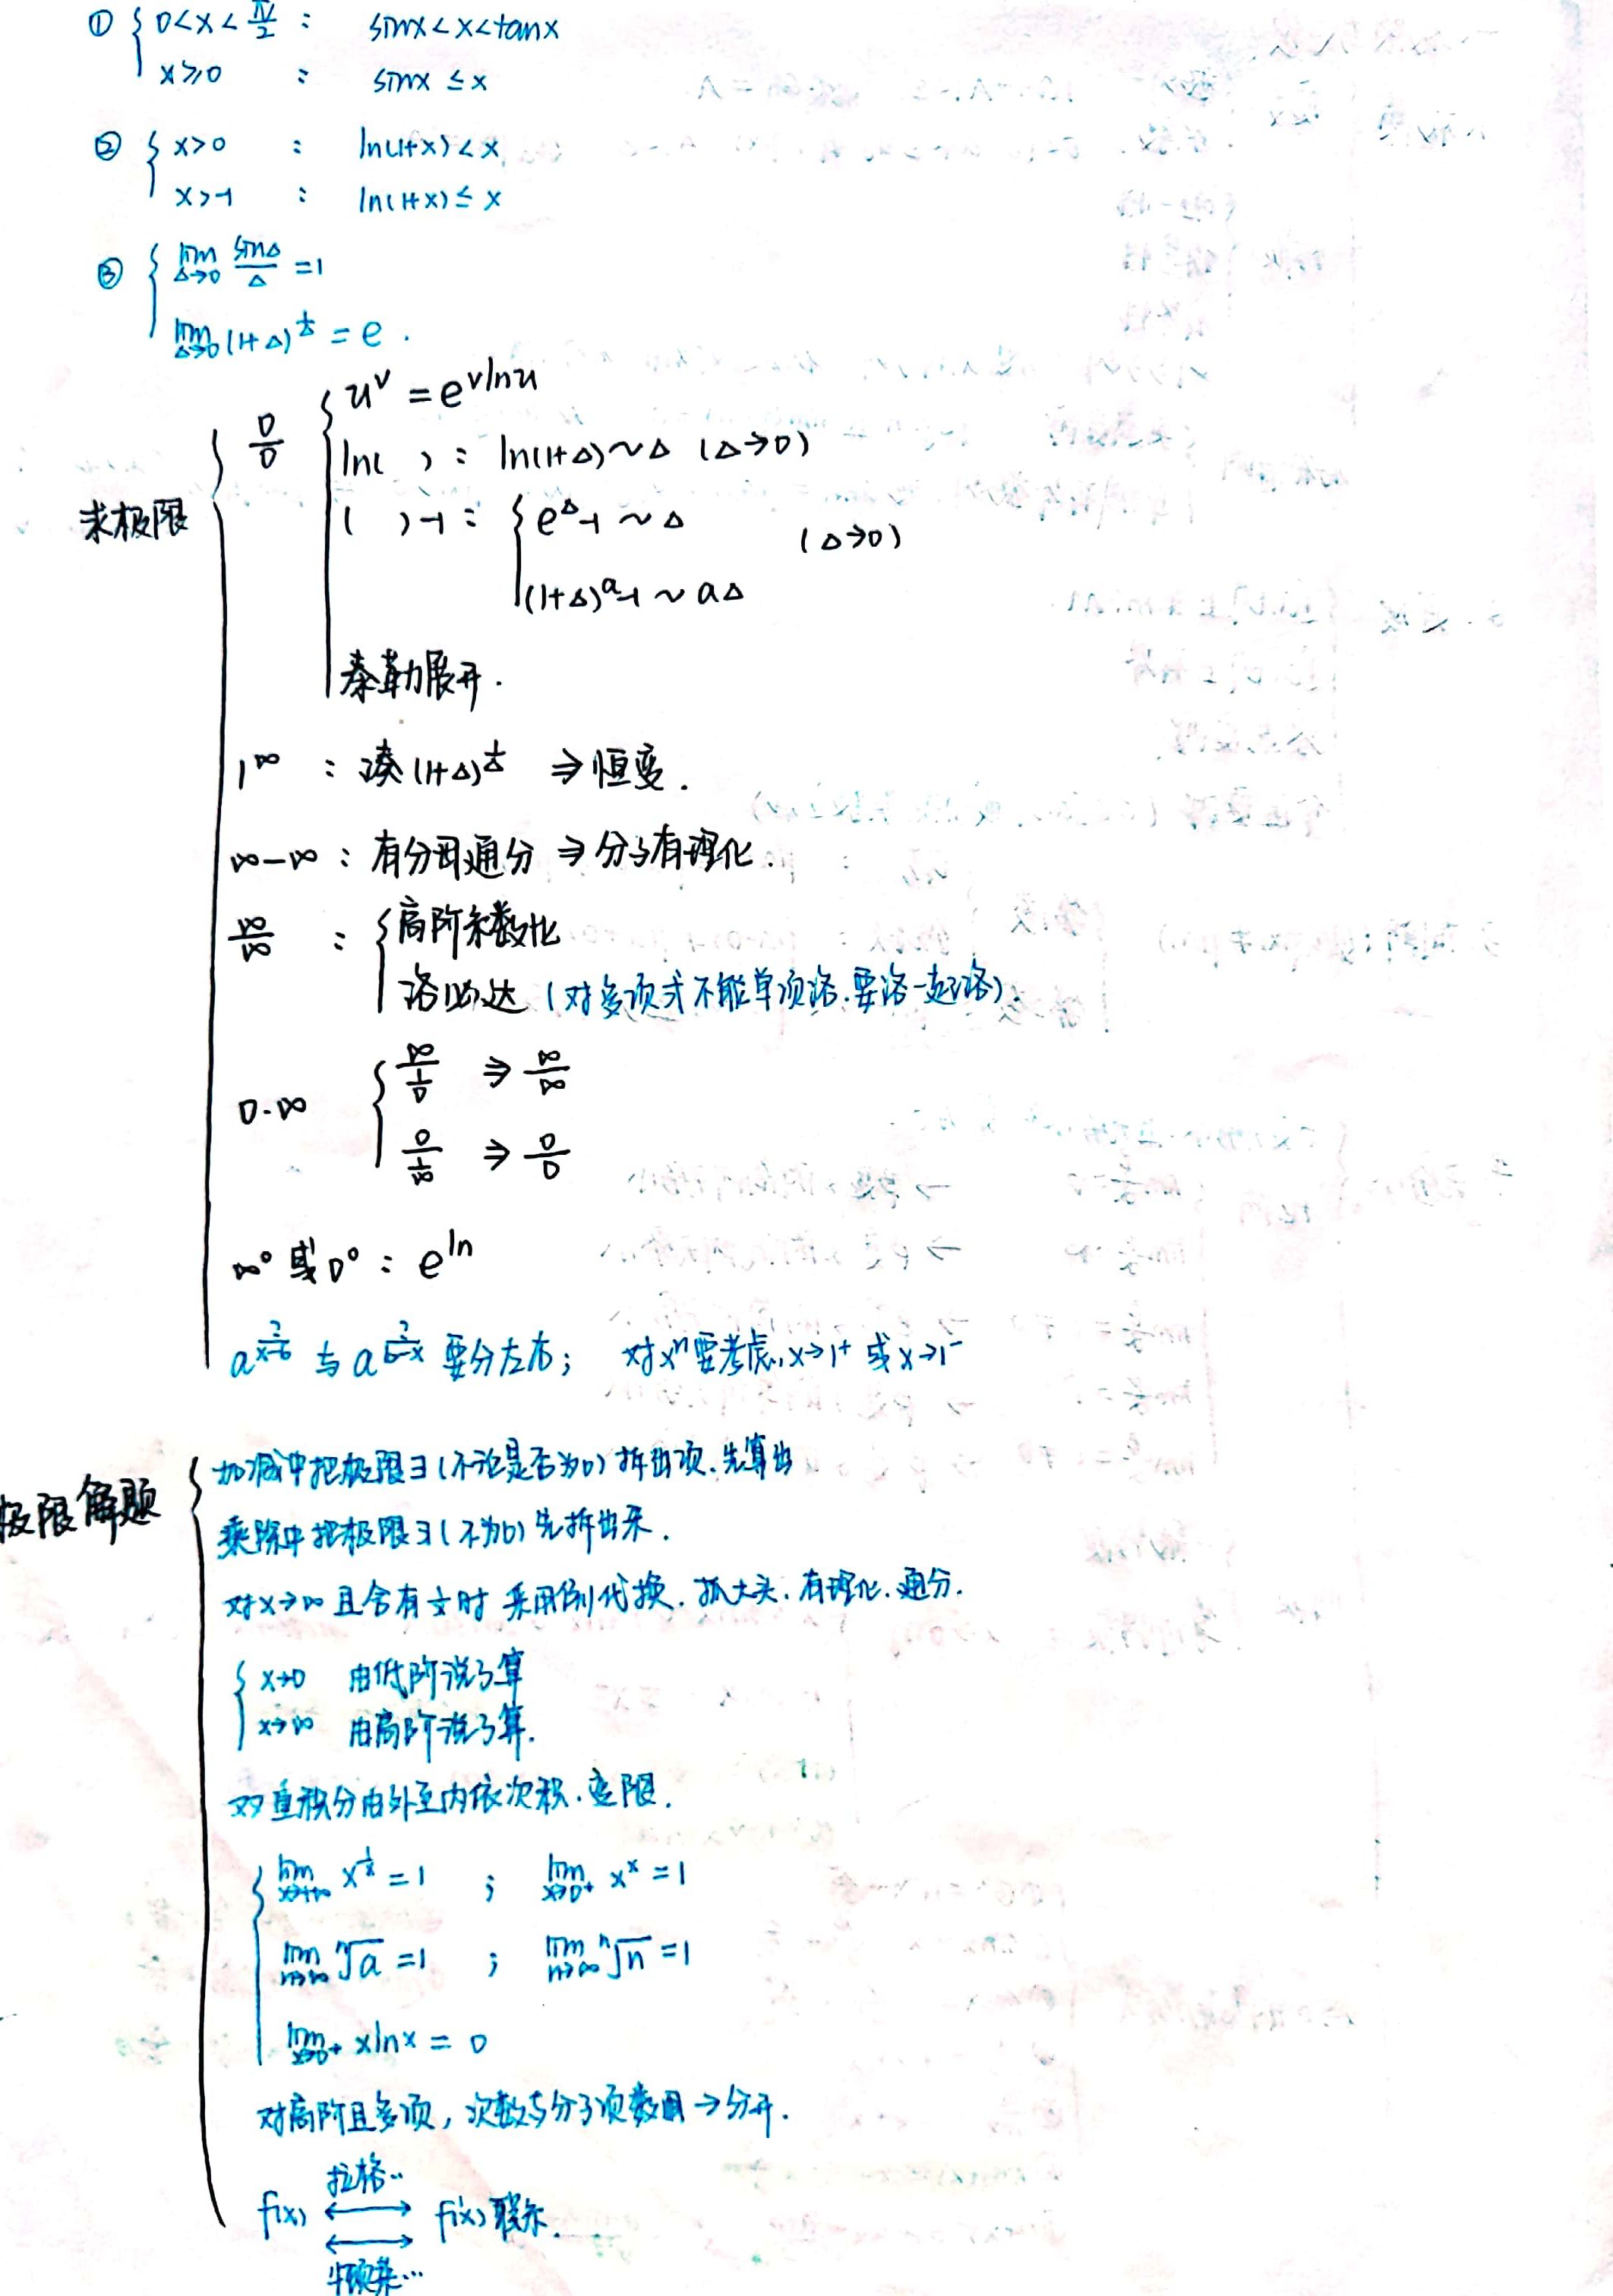 ① { 0<x<π/2 : sinx<x<tanx
x≥0 : sinx ≤ x
② { x>0 : ln(1+x)<x
x>-1 : ln(1+x)≤ x
③ { lim Δ→0 sinΔ/Δ =1
lim Δ→0 (1+Δ)^(1/Δ) = e .
求极限
0/0 { u^v = e^(vlnu)
ln( ) : ln(1+Δ)~Δ (Δ→0)
( )-1 : { e^Δ-1 ~ Δ (Δ→0)
(1+Δ)^a-1 ~ aΔ
泰勒展开.
1^∞ : 凑(1+Δ)^(1/Δ) ⇒恒变.
∞-∞ : 有分母通分 ⇒分子有理化.
∞/∞ : { 高阶系数比
洛必达 (对多项式不能单项洛.要洛一起洛).
0·∞ { ∞/(1/0) ⇒ ∞/∞
0/(1/∞) ⇒ 0/0
∞^0 或 0^0 : e^ln
a^(?/(x-b)) 与 a^(?/(b-x)) 要分左右; 对x^n要考虑,x→1⁺ 或 x→1⁻
极限解题
加减中把极限∃(不论是否为0)拆出项.先算出
乘除中把极限∃(不为0)先拆出来.
对x→∞且含有 1/x 时 采用倒代换.抓大头.有理化.通分.
{ x→0 由低阶说了算
x→∞ 由高阶说了算.
双重积分由外至内依次积.变限.
{ lim x→+∞ x^(1/x) = 1 ; lim x→0+ x^x = 1
lim n→∞ ⁿ√a = 1 ; lim n→∞ ⁿ√n = 1
lim x→0+ xlnx = 0
对高阶且多项, 次数与分子项数 →分开.
拉格..
f(x) ⟷ f'(x)联系.
牛顿莱…